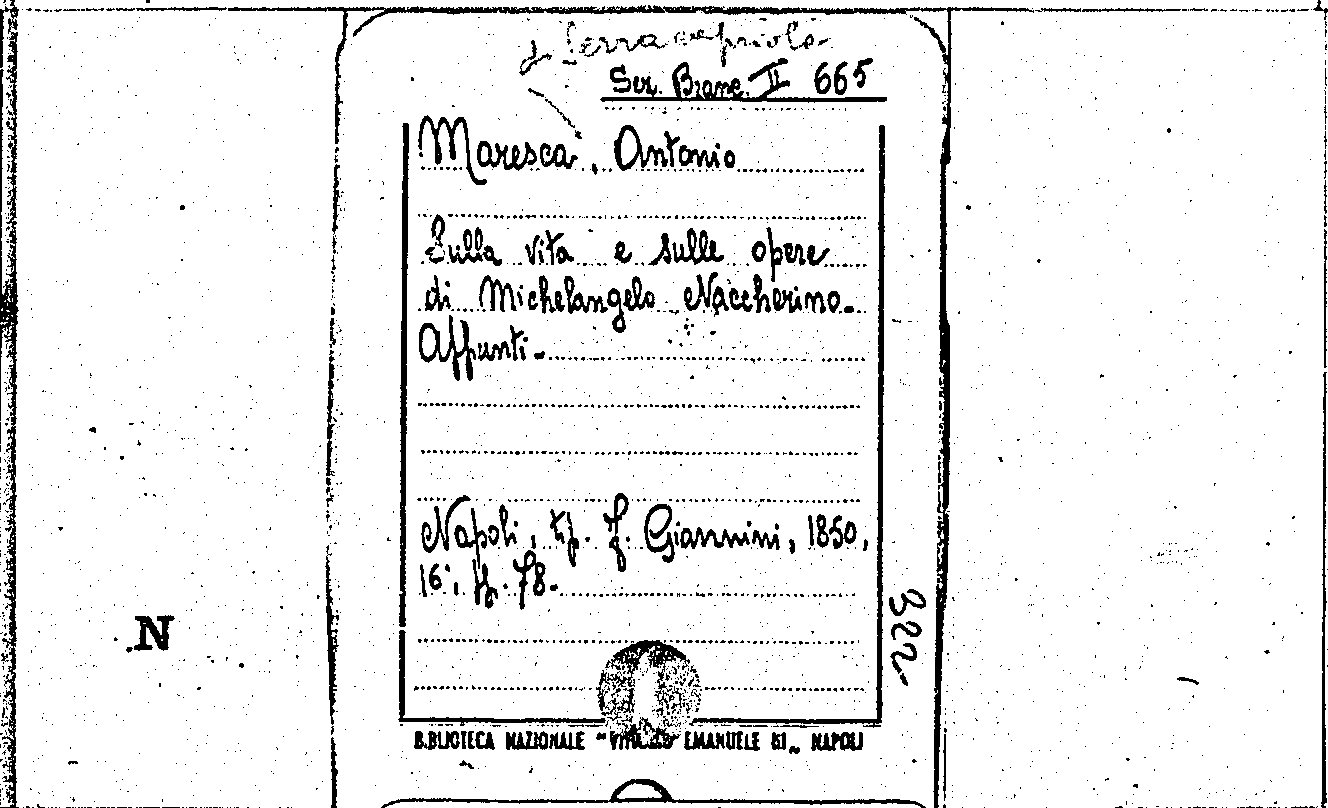 di Serracapriola
Ser. Branc. II 665
Maresca, Antonio
Sulla vita e sulle opere
di Michelangelo Naccherino.
Appunti.
Napoli, tip. F. Giannini, 1850,
16°, pp. 78.
322
N
BIBLIOTECA NAZIONALE "VITTORIO EMANUELE III" NAPOLI